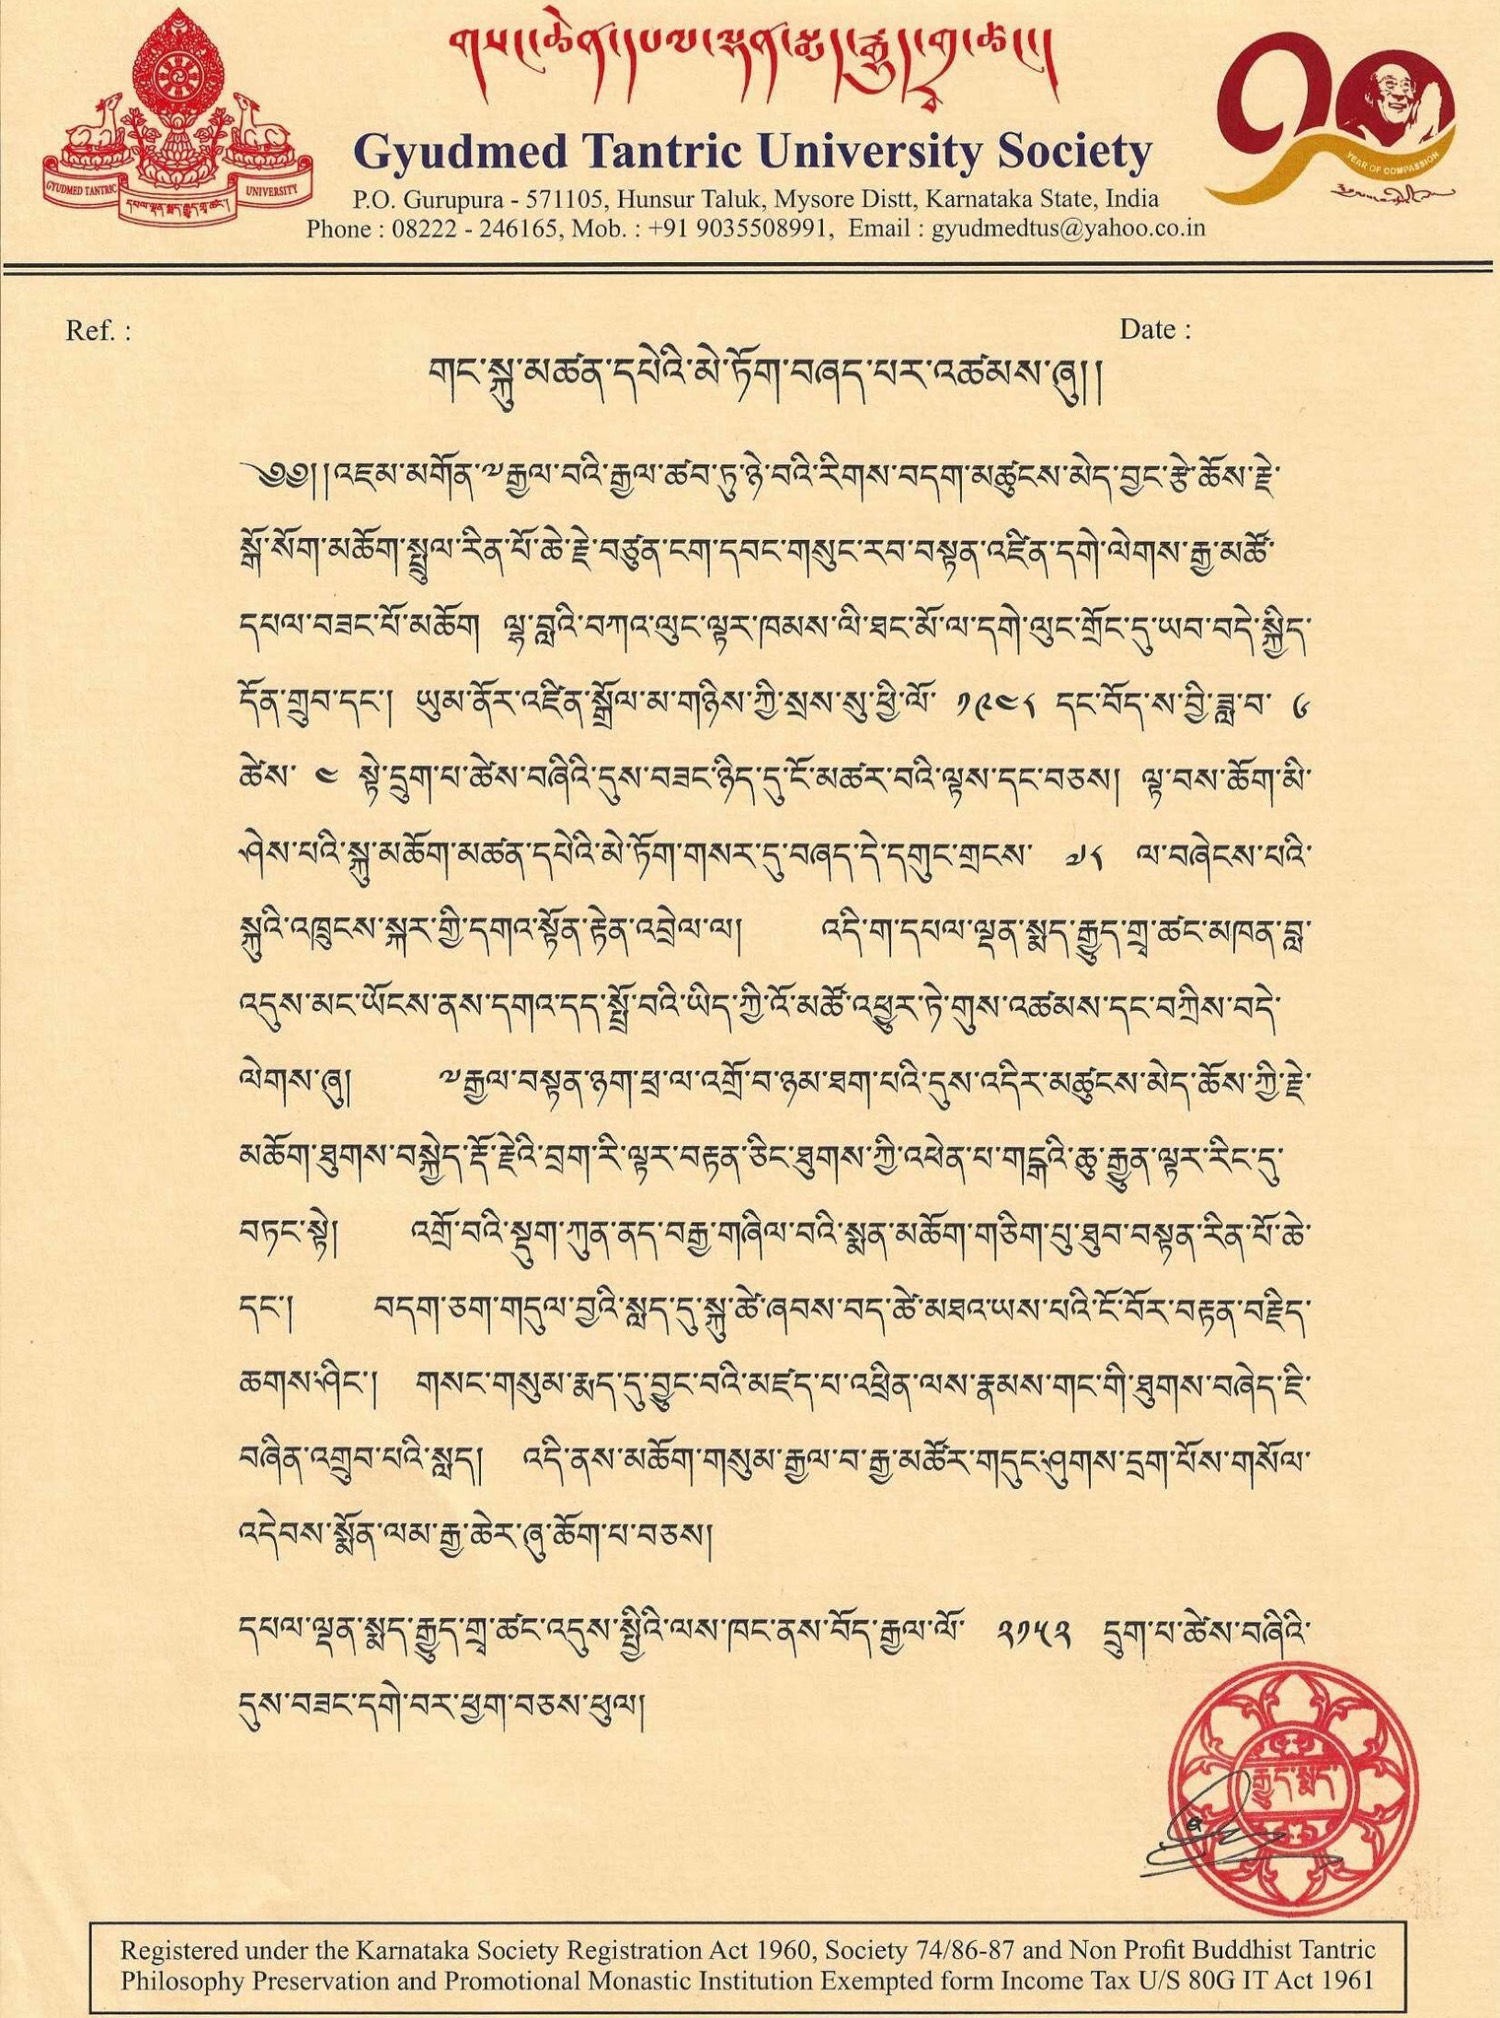 གསང་ཆེན་དཔལ་ལྡན་སྨད་རྒྱུད་གྲྭ་ཚང་།
Gyudmed Tantric University Society
P.O. Gurupura - 571105, Hunsur Taluk, Mysore Distt, Karnataka State, India
Phone : 08222 - 246165, Mob. : +91 9035508991, Email : gyudmedtus@yahoo.co.in
GYUDMED TANTRIC UNIVERSITY
དཔལ་ལྡན་སྨད་རྒྱུད་གྲྭ་ཚང་།
90
YEAR OF COMPASSION
Ref. :
Date :
གང་སྐུ་མཚན་དཔེའི་མེ་ཏོག་བཞད་པར་འཚམས་ཞུ།།
༄༅།།འཇམ་མགོན་༧རྒྱལ་བའི་རྒྱལ་ཚབ་ཏུ་ཉེ་བའི་རིགས་བདག་མཚུངས་མེད་བྱང་རྩེ་ཆོས་རྗེ་
སྒོ་སོག་མཆོག་སྤྲུལ་རིན་པོ་ཆེ་རྗེ་བཙུན་ངག་དབང་གསུང་རབ་བསྟན་འཛིན་དགེ་ལེགས་རྒྱ་མཚོ་
དཔལ་བཟང་པོ་མཆོག ལྷ་བླའི་བཀའ་ལུང་ལྟར་ཁམས་ལི་ཐང་མོ་ལ་དགེ་ལུང་གྲོང་དུ་ཡབ་བདེ་སྐྱིད་
དོན་གྲུབ་དང་། ཡུམ་ནོར་འཛིན་སྒྲོལ་མ་གཉིས་ཀྱི་སྲས་སུ་ཕྱི་ལོ་ ༡༩༤༨ དང་བོད་ས་བྱི་ཟླ་བ་ ༦
ཚེས་ ༤ སྟེ་དྲུག་པ་ཚེས་བཞིའི་དུས་བཟང་ཉིད་དུ་ངོ་མཚར་བའི་ལྟས་དང་བཅས། ལྟ་བས་ཆོག་མི་
ཤེས་པའི་སྐུ་མཆོག་མཚན་དཔེའི་མེ་ཏོག་གསར་དུ་བཞད་དེ་དགུང་གྲངས་ ༧༨ ལ་བཞེངས་པའི་
སྐུའི་འཁྲུངས་སྐར་གྱི་དགའ་སྟོན་རྟེན་འབྲེལ་ལ། འདི་ག་དཔལ་ལྡན་སྨད་རྒྱུད་གྲྭ་ཚང་མཁན་བླ་
འདུས་མང་ཡོངས་ནས་དགའ་དད་སྤྲོ་བའི་ཡིད་ཀྱི་འོ་མཚོ་འཕྱུར་ཏེ་གུས་འཚམས་དང་བཀྲིས་བདེ་
ལེགས་ཞུ། ༧རྒྱལ་བསྟན་ཉག་ཕྲ་ལ་འགྲོ་བ་ཉམ་ཐག་པའི་དུས་འདིར་མཚུངས་མེད་ཆོས་ཀྱི་རྗེ་
མཆོག་ཐུགས་བསྐྱེད་རྡོ་རྗེའི་བྲག་རི་ལྟར་བརྟན་ཅིང་ཐུགས་ཀྱི་འཕེན་པ་གངྒའི་ཆུ་རྒྱུན་ལྟར་རིང་དུ་
བཏང་སྟེ། འགྲོ་བའི་སྡུག་ཀུན་ནད་བརྒྱ་གཞིལ་བའི་སྨན་མཆོག་གཅིག་པུ་ཐུབ་བསྟན་རིན་པོ་ཆེ་
དང་། བདག་ཅག་གདུལ་བྱའི་སླད་དུ་སྐུ་ཚེ་ཞབས་བད་ཚེ་མཐའ་ཡས་པའི་ངོ་བོར་བརྟན་བརྗིད་
ཆགས་ཤིང་། གསང་གསུམ་རྨད་དུ་བྱུང་བའི་མཛད་པ་འཕྲིན་ལས་རྣམས་གང་གི་ཐུགས་བཞེད་ཇི་
བཞིན་འགྲུབ་པའི་སླད། འདི་ནས་མཆོག་གསུམ་རྒྱལ་བ་རྒྱ་མཚོར་གདུང་ཤུགས་དྲག་པོས་གསོལ་
འདེབས་སྨོན་ལམ་རྒྱ་ཆེར་ཞུ་ཆོག་པ་བཅས།
དཔལ་ལྡན་སྨད་རྒྱུད་གྲྭ་ཚང་འདུས་སྤྱིའི་ལས་ཁང་ནས་བོད་རྒྱལ་ལོ་ ༢༡༥༢ དྲུག་པ་ཚེས་བཞིའི་
དུས་བཟང་དགེ་བར་ཕྱག་བཅས་ཕུལ།
རྒྱུད་སྨད་
Registered under the Karnataka Society Registration Act 1960, Society 74/86-87 and Non Profit Buddhist Tantric
Philosophy Preservation and Promotional Monastic Institution Exempted form Income Tax U/S 80G IT Act 1961